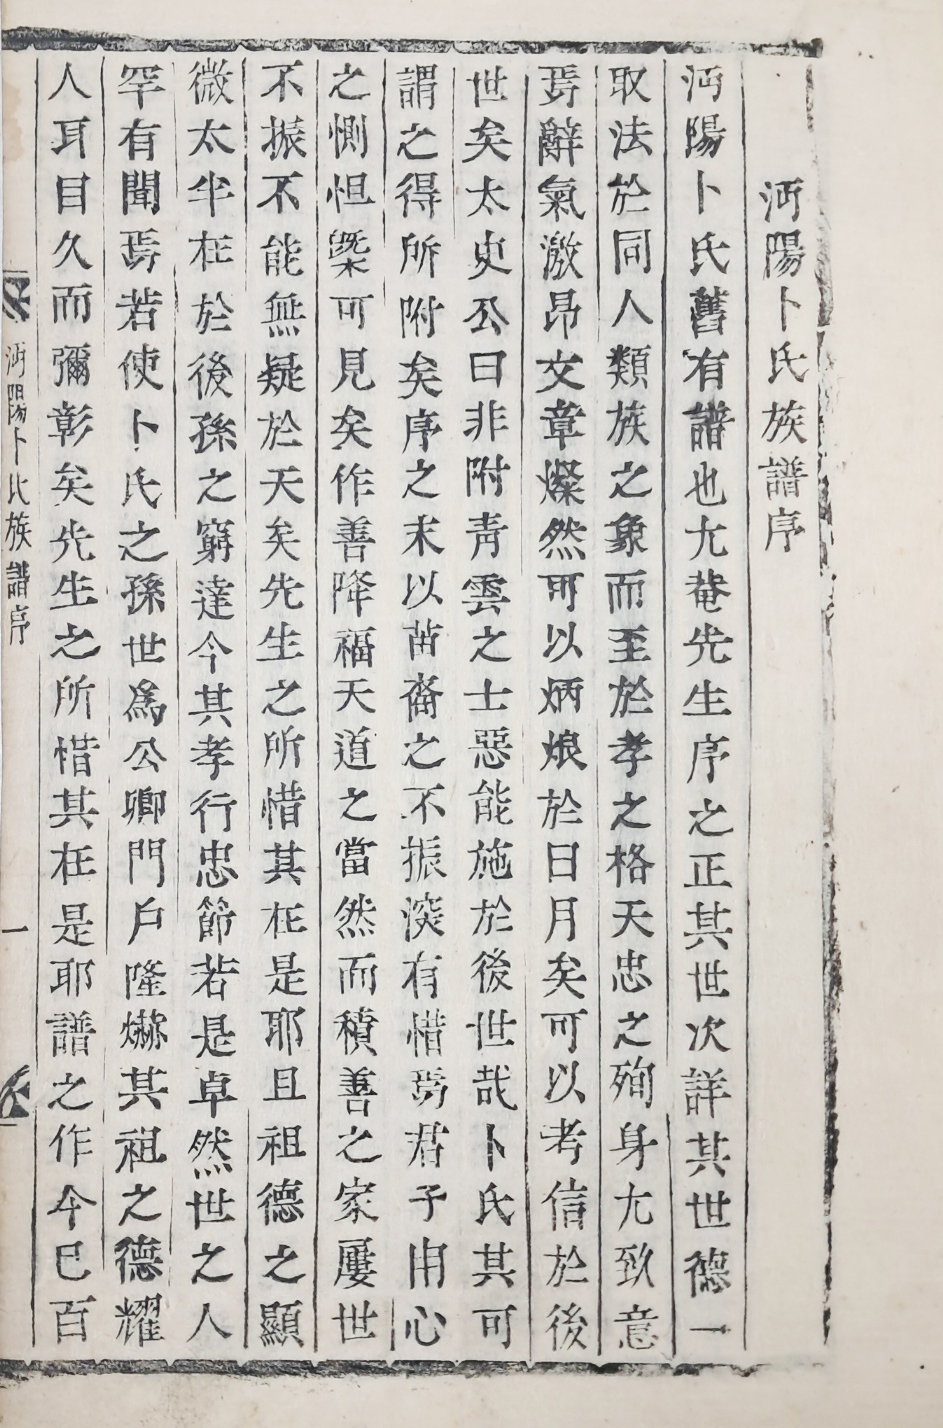 沔陽卜氏族譜序
沔陽卜氏舊有譜也尤菴先生序之正其世次詳其世德一
取法於同人類族之象而至於孝之格天忠之殉身尤致意
焉辭氣激昂文章燦然可以炳烺於日月矣可以考信於後
世矣太史公曰非附靑雲之士惡能施於後世哉卜氏其可
謂之得所附矣序之末以苗裔之不振深有惜焉君子用心
之惻怛槩可見矣作善降福天道之當然而積善之家屢世
不振不能無疑於天矣先生之所惜其在是耶且祖德之顯
微太半在於後孫之窮達今其孝行忠節若是卓然世之人
罕有聞焉若使卜氏之孫世爲公卿門戶隆爀其祖之德耀
人耳目久而彌彰矣先生之所惜其在是耶譜之作今已百
沔陽卜氏族譜序
一